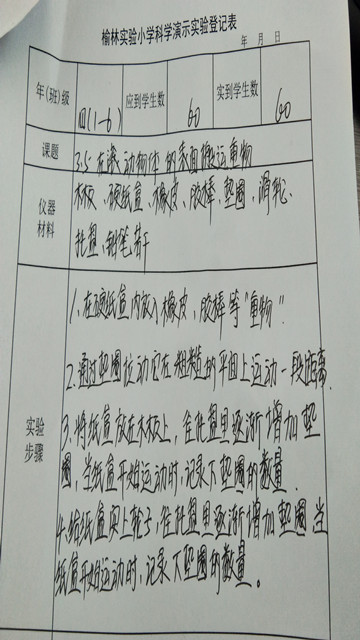 榆林实验小学科学演示实验登记表
年 月 日
年(班)级 四(1-6) 应到学生数 60 实到学生数 60
课题 3.5 在滚动物体的表面搬运重物
仪器材料 木板、硬纸盒、橡皮、胶棒、垫圈、滑轮、
托盘、铅笔若干
实验步骤
1、在硬纸盒内放入橡皮、胶棒等"重物".
2.通过垫圈拉动它在粗糙的平面上运动一段距离.
3.将纸盒放在木板上,往托盘里逐渐增加垫
圈,当纸盒开始运动时,记录下垫圈的数量.
4.给纸盒安上轮子,往托盘里逐渐增加垫圈,当
纸盒开始运动时,记录下垫圈的数量。